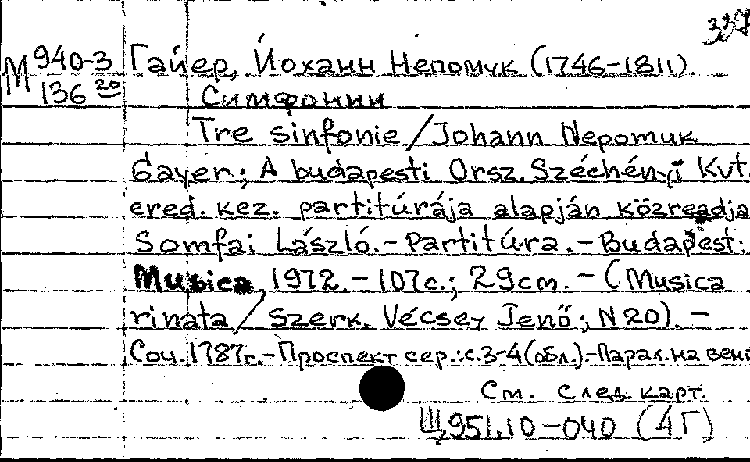 М 940-3 Гайер, Йоханн Непомук (1746-1811).
136 20 Симфонии
Tre sinfonie / Johann Nepomuk
Gayer; A budapesti Orsz. Széchényi Kvt.
ered. kez. partitúrája alapján közreadja
Somfai László. - Partitúra. - Budapest:
Musica, 1972. - 107с.; 29cm. - (Musica
rinata / Szerk. Vécsey Jenő; N20). -
Соч. 1787г. - Проспект сер.: с. 3-4 (обл.). - Парал. на венг
См. след. карт.
Ш, 951.10-040 (4Г)